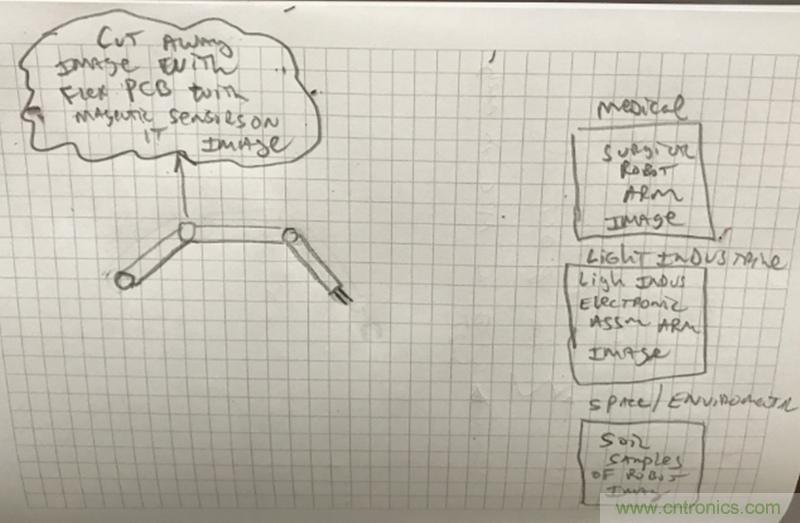 CUT AWAY
IMAGE WITH
FLEX PCB WITH
MAGENTIC SENSORS ON
IT IMAGE
MEDICAL
ROBOT
ARM
IMAGE
LIGHT INDUSTRIAL
LIGH INDUS
ELECTRONIC
ASSM ARM
IMAGE
SPACE/ENVIROMENTAL
SOIL
SAMPLES
OF ROBOT
IMAGE
www.cntronics.com